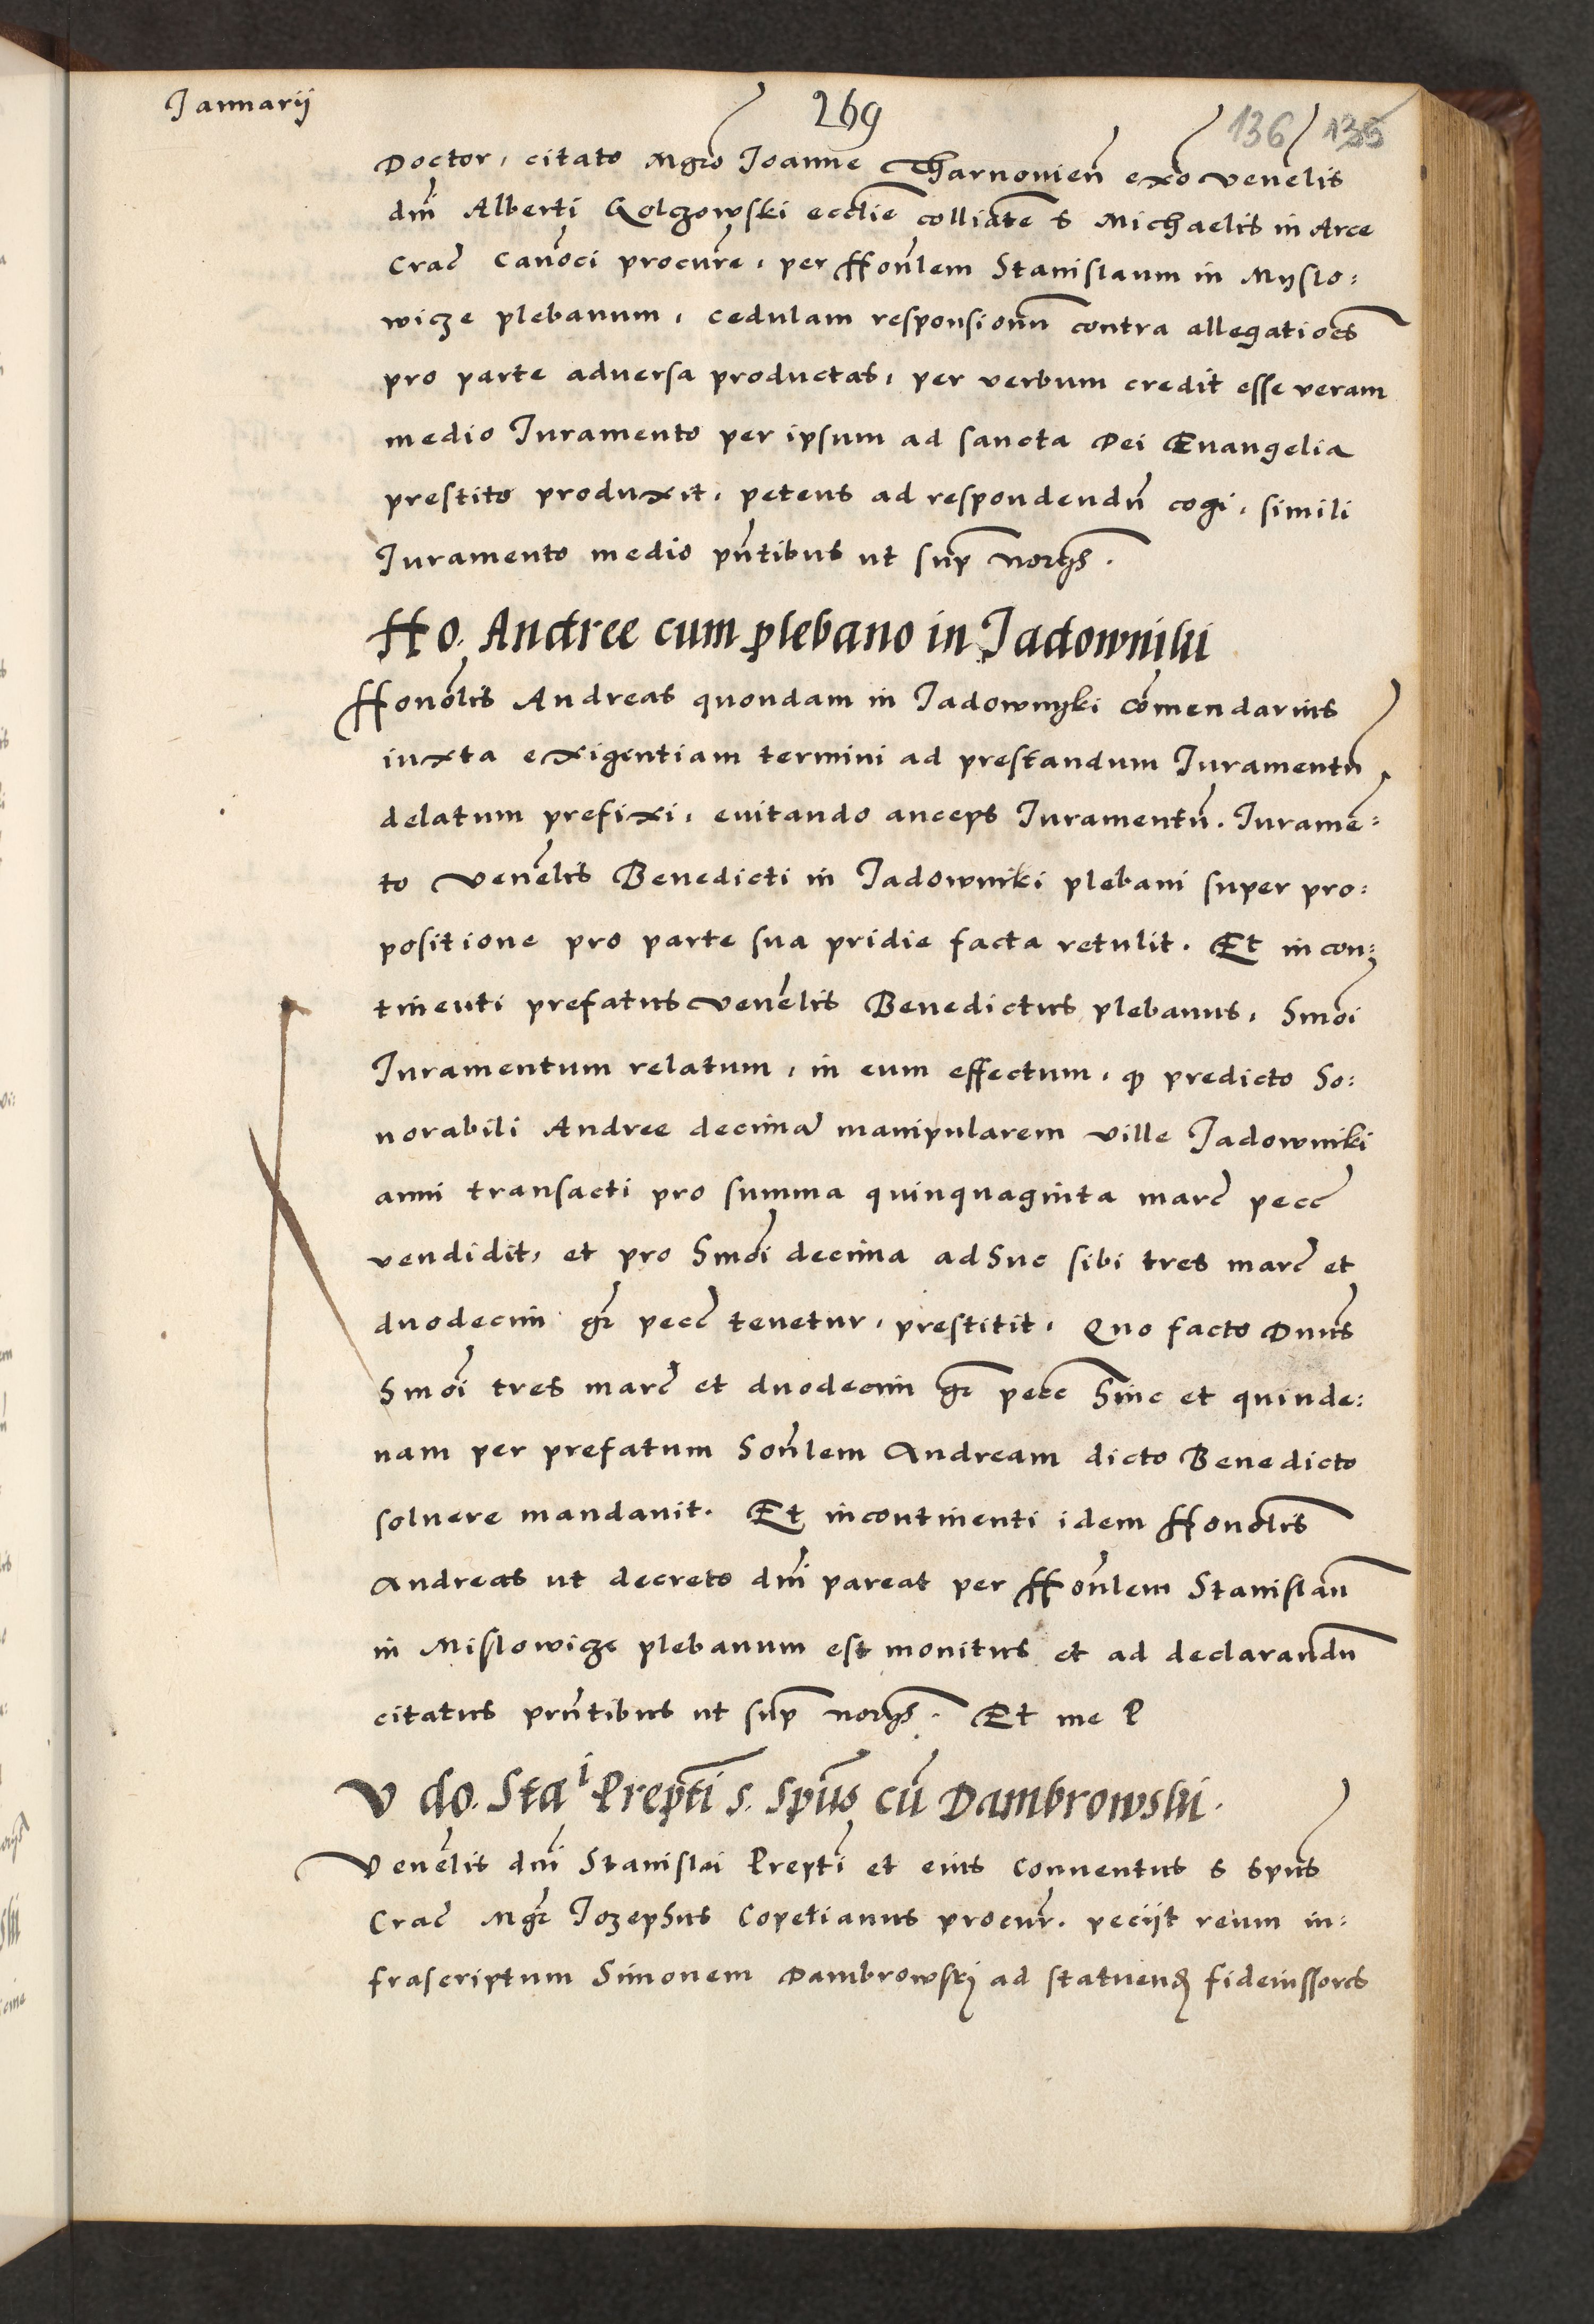 Januarij
269
136 135
Doctor, citato Mgro Joanne Tharnovień exo venelis
dni Alberti Golczowski ecclie colliate S Michaelis in Arce
Crac Canoci procure, per Honlem Stanislaum in Myslo:
wicze plebanum, cedulam responsionu contra allegatioes
pro parte adversa productas, per verbum credit esse veram
medio Juramento per ipsum ad sancta Dei Evangelia
prestito produxit, petens ad respondendu cogi, simili
Juramento medio pntibus ut sup
Ho. Andree cum plebano in Jadowniki
Honolis Andreas quondam in Jadownyki comendarius
iuxta exigentiam termini ad prestandum Juramentu
delatum prefixi, evitando anceps Juramentu. Jurame:
to venelis Benedicti in Jadowniki plebani super pro:
positione pro parte sua pridie facta retulit. Et in con:
tinenti prefatus venelis Benedictus plebanus, hmoi
Juramentum relatum, in eum effectum, qz predicto ho:
norabili Andree decima manipularem ville Jadowniki
anni transacti pro summa quinquaginta marc pecc
vendidit, et pro hmoi decima adhuc sibi tres marc et
duodecim gr pecc tenetur, prestitit. Quo facto Dnus
hmoi tres marc et duodecim gr pecc hinc et quinde:
nam per prefatum honlem Andream dicto Benedicto
solvere mandavit. Et incontinenti idem Honolis
Andreas ut decreto dni pareat per Honlem Stanislau
in Mislowicze plebanum est monitus et ad declarandu
citatus pntibus ut sup. Et me P
V do. Stai Prepti s. Spus cu Dambrowski.
Venelis dni Stanislai Prepti et eius Conventus S Spus
Crac Mgr Jozephus Copetianus procur. peciit reum in:
frascriptum Simonem Dambrowskj ad statuend fideiussores